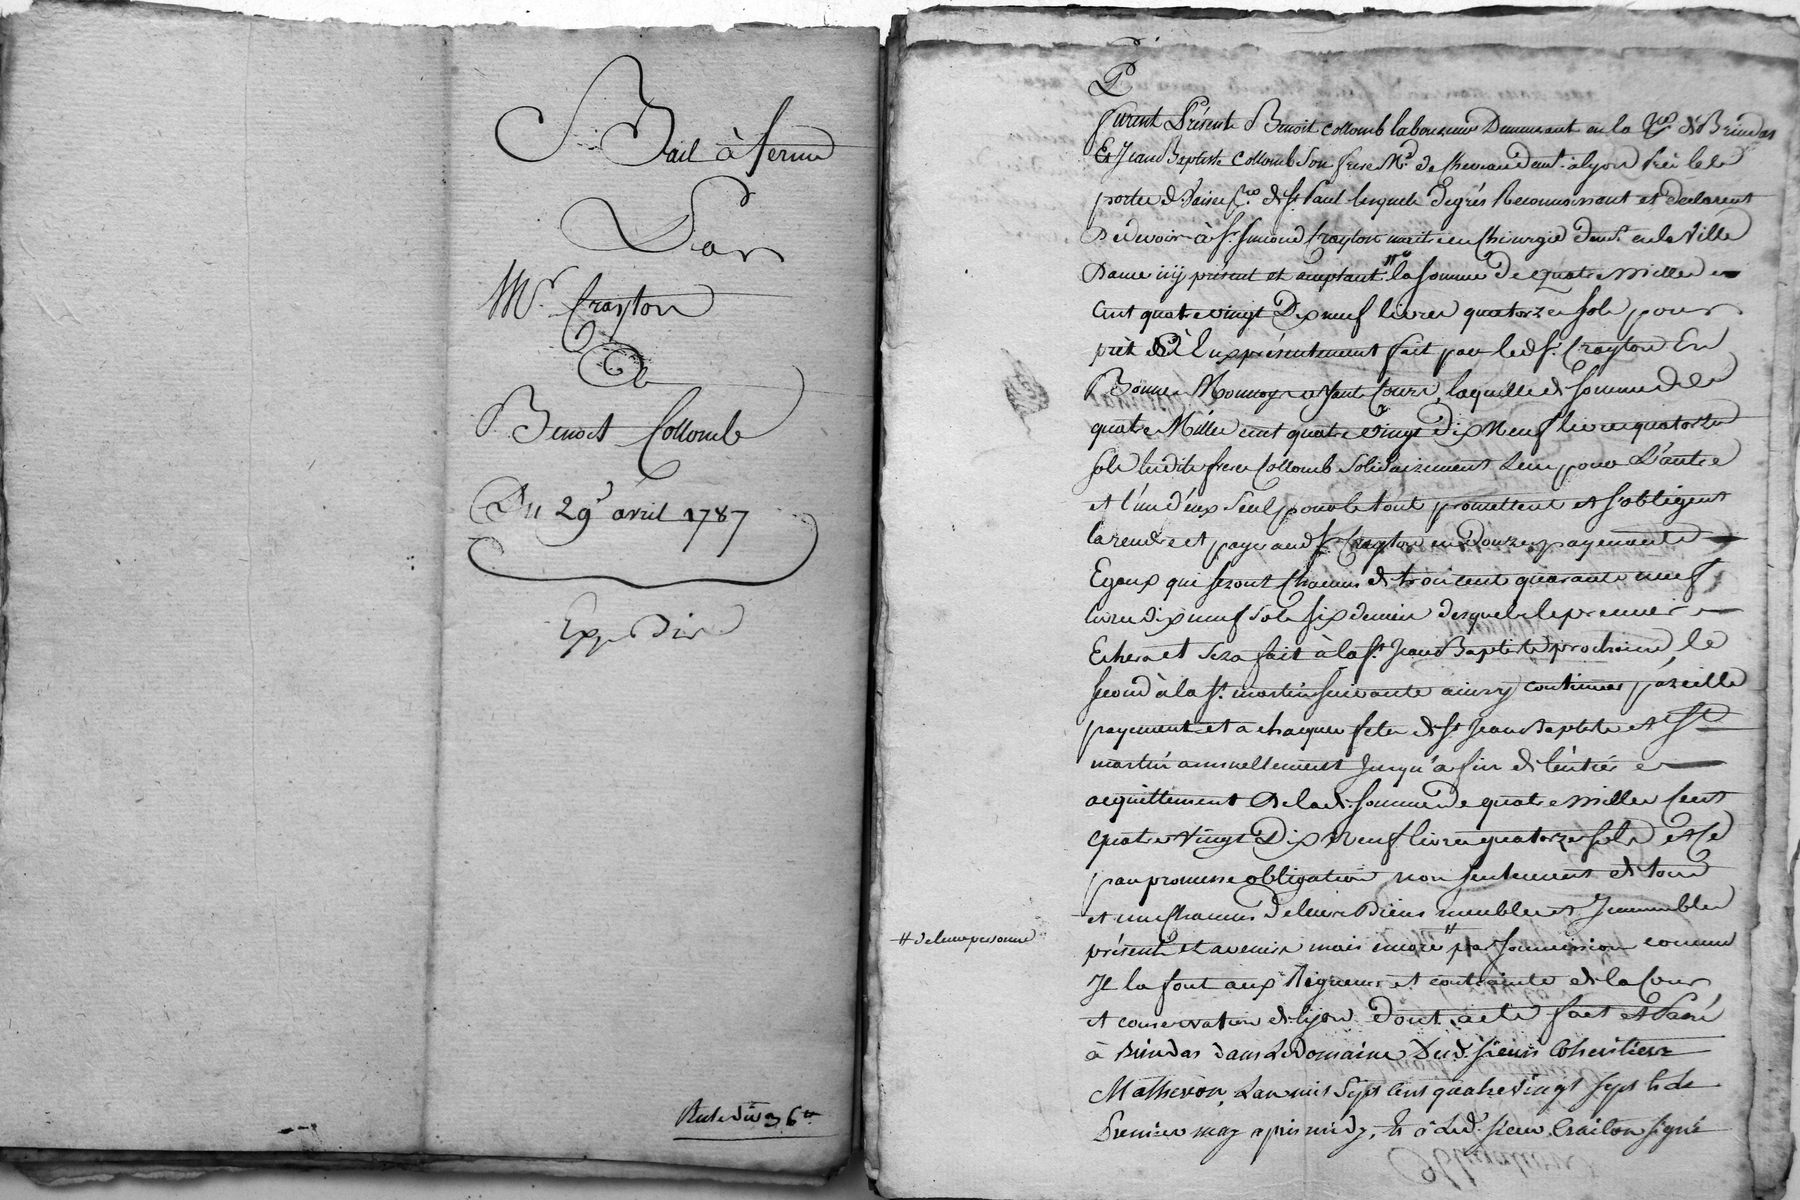 Bail à ferme
Par
Mr. Crayton
à
Benoit Collomb
Du 29e avril 1787
Expedié
Reste dû 36 tt
P
furent Présents Benoit Collomb laboureur Demeurant en la psse. de Brindas
Et Jean Baptiste Collomb son frere Md. de chevaux demt. à Lyon près les
portes de Vaise psse. de St. Paul lesquels de grés Reconnoissent et declarent
Devoir à Sr. Simond Crayton maitre en Chirurgie demt. en la Ville
icy présent et acceptant la somme de quatre milles
Cent quatre vingt Dix neuf livres quatorze sols pour
prèt à Eux présentement fait par ledt. Sr. Crayton En
Bonne Monnoye ayant Cours, laquelle de somme de
quatre Milles cent quatre Vingt dix Neuf livres quatorze
sols lesdits freres Collomb Solidairement l'un pour L'autre
et l'un d'eux seul pour le tout promettent et s'obligent
la rendre et payer audt. Sr. Crayton en Douze payements
Egaux qui seront Chacuns de trois cent quarante neuf
livres dix neuf sols six deniers desquels le premier
Echera et sera fait à la St. Jean Baptiste prochaine, le
second à la St. martin suivante ainsy continuer pareille
payement et a chaques fetes de St. Jean Baptiste et St.
martin annuellement Jusqu'a fin de l'entier
acquittement de lad. somme de quatre milles Cent
quatre Vingt Dix Neuf livres quatorze sols et Ce
par promesse obligation non seulement de tous
et un Chacuns de leurs Biens meubles et Immeubles
présents et avenir mais encore # par soumission comme
# de leur personne
Il la font aux Rigueurs et contrainte de la Cour
et conservation de Lyon. dont acte fait et Passé
à Brindas dans Le Domaine Dud. sieurs Coheritiers
Matheron, L'an mil Sept cent quatre Vingt sept le
Premier may après midy, & à Led. sieur Craiton signé